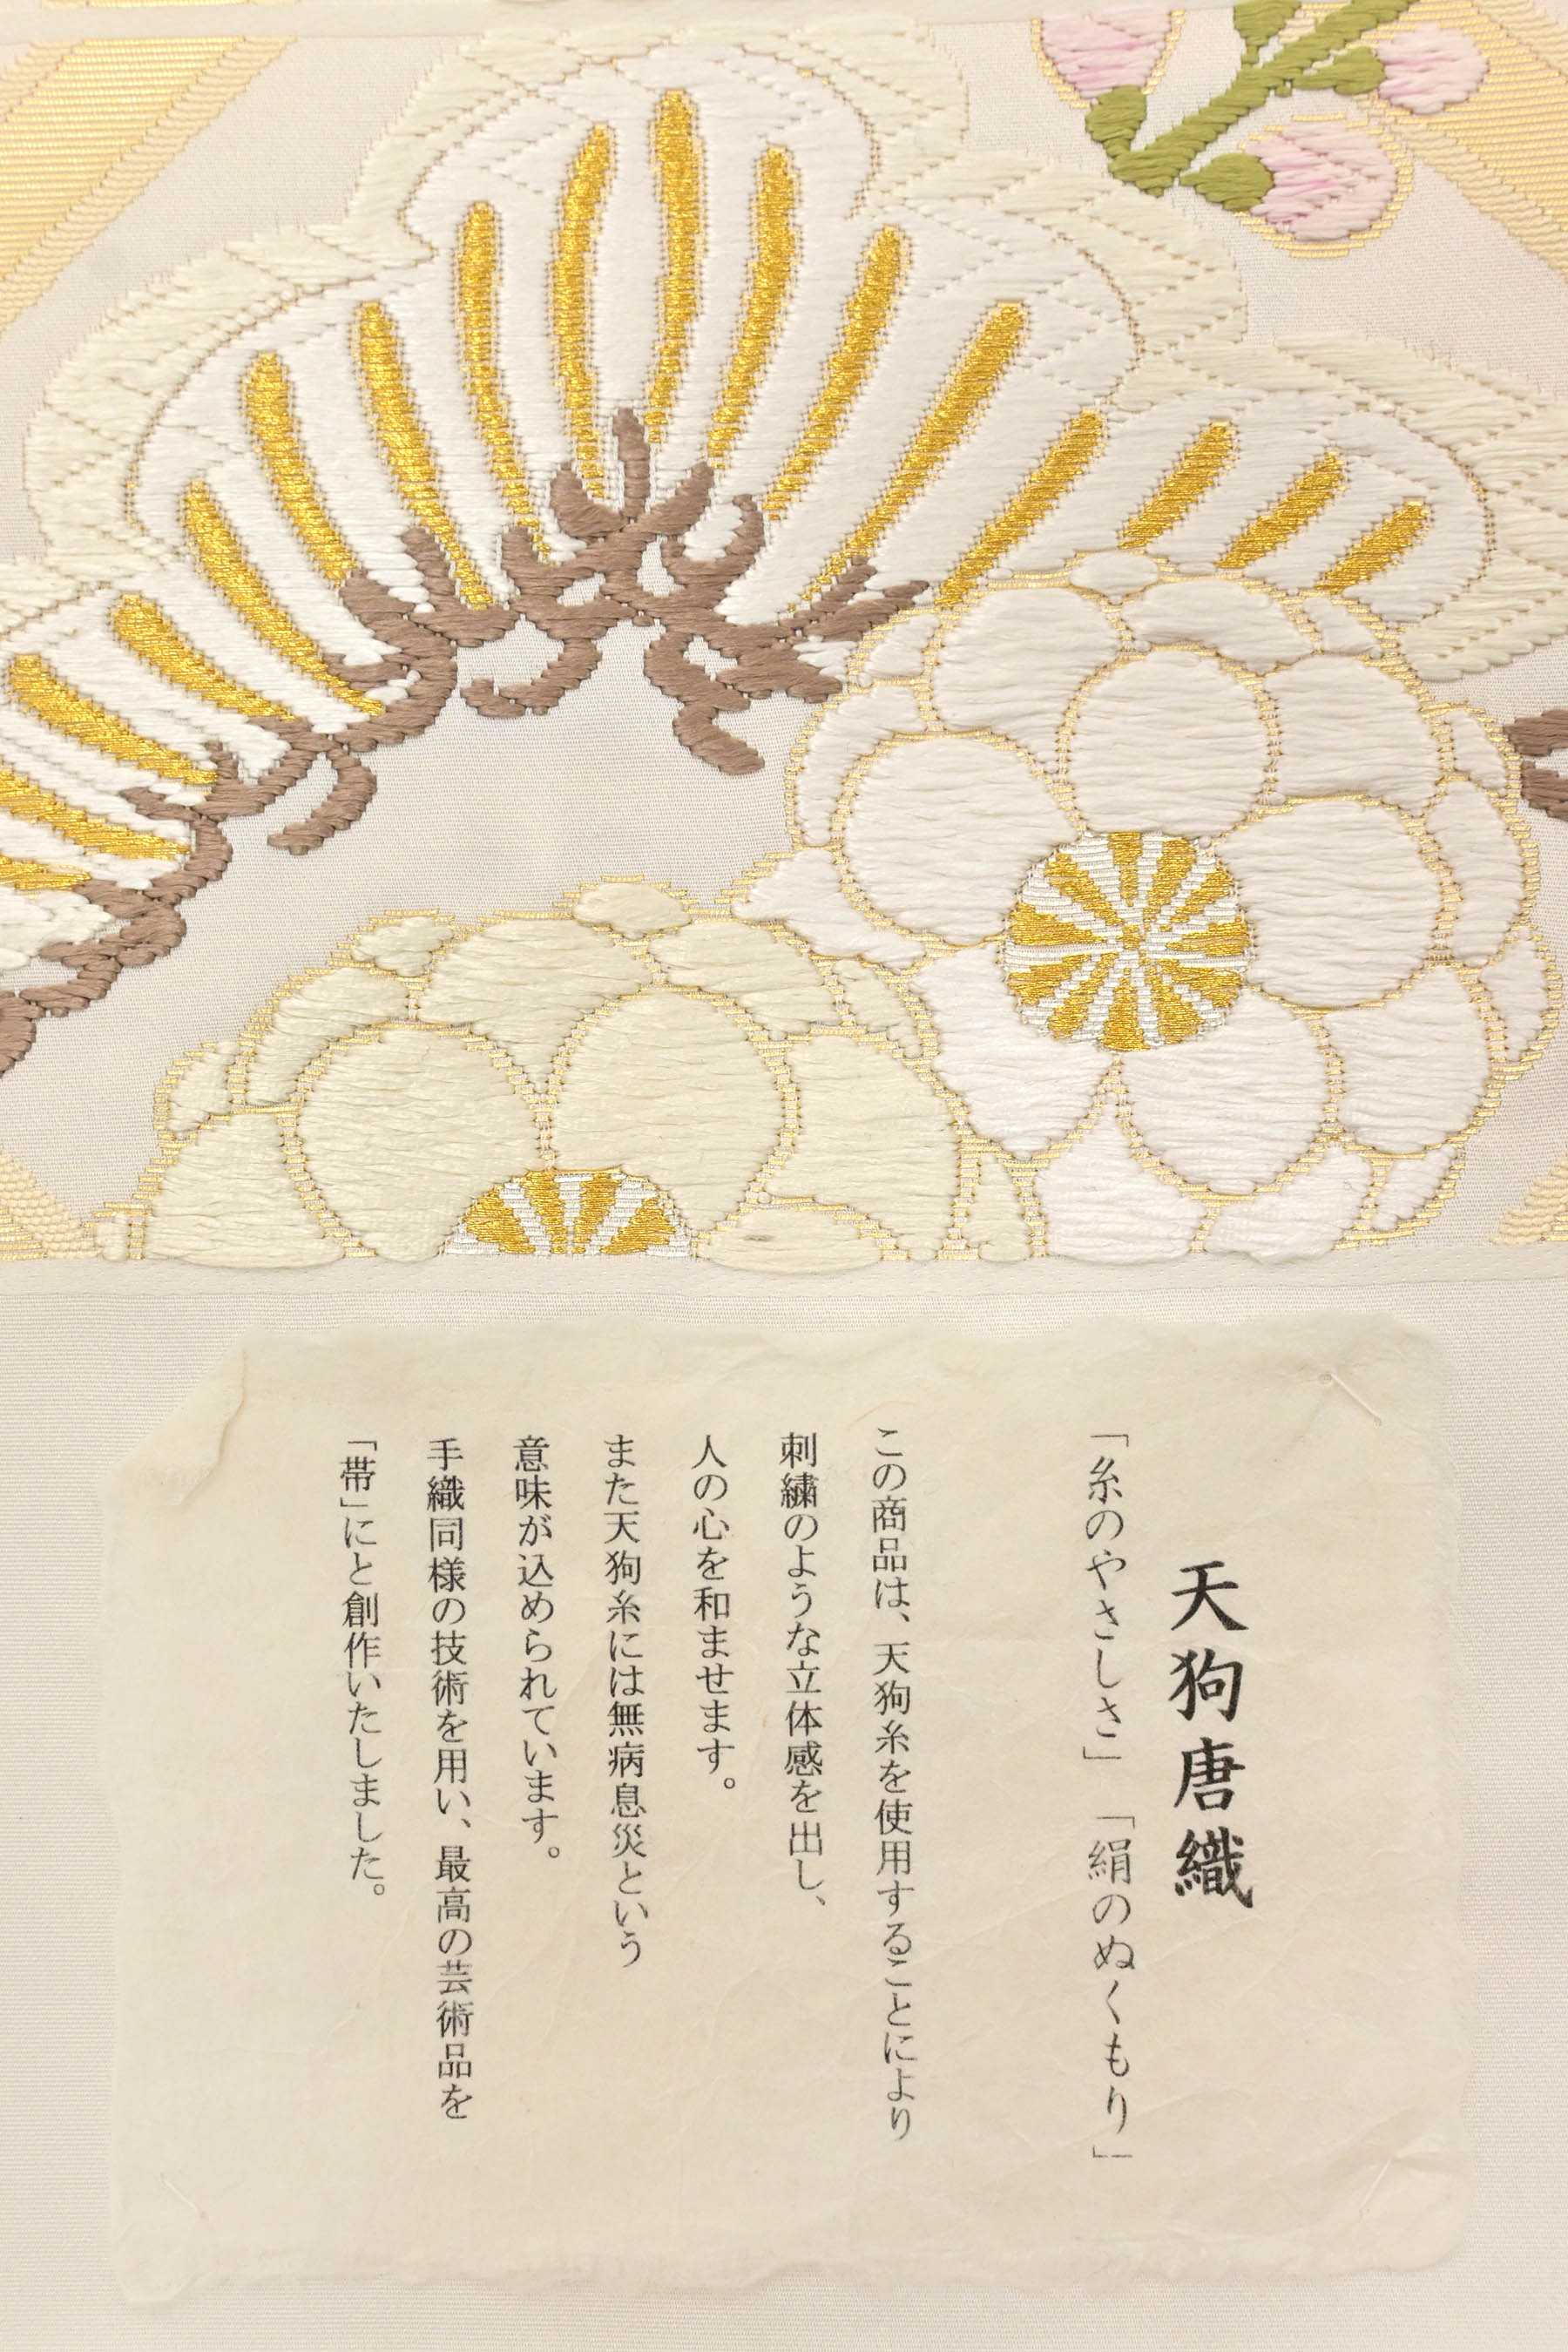 天狗唐織
「糸のやさしさ」「絹のぬくもり」
この商品は、天狗糸を使用することにより
刺繍のような立体感を出し、
人の心を和ませます。
また天狗糸には無病息災という
意味が込められています。
手織同様の技術を用い、最高の芸術品を
「帯」にと創作いたしました。